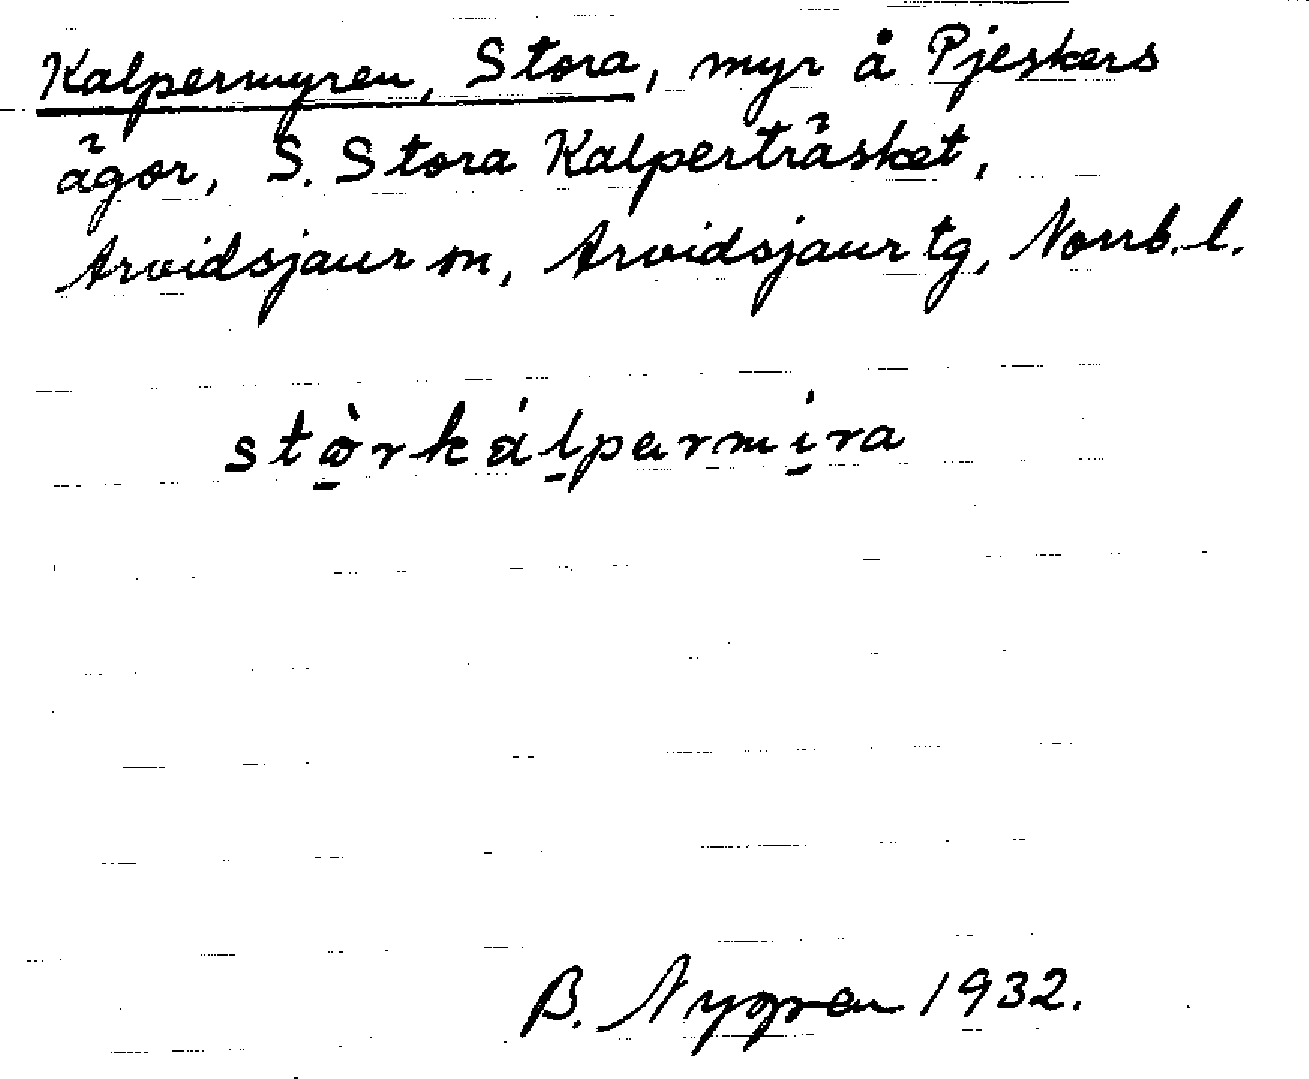 Kalpermyren, Stora, myr å Pjeskers
ägor, S. Stora Kalperträsket,
Arvidsjaur sn, Arvidsjaur tg, Norrb. l.
stò̱rkál̠parmi̱̇ra
B. Nygren 1932.